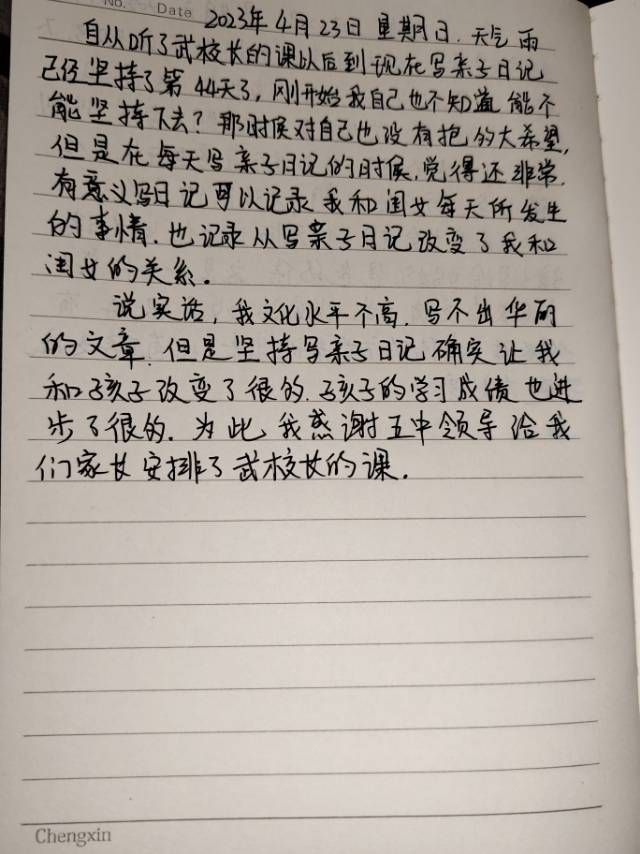 No. Date
2023年4月23日 星期日. 天气 雨
自从听了武校长的课以后到现在写亲子日记
已经坚持了第44天了, 刚开始我自己也不知道能不
能坚持下去? 那时候对自己也没有抱的大希望,
但是在每天写亲子日记的时候, 觉得还非常.
有意义写日记可以记录我和闺女每天所发生
的事情. 也记录从写亲子日记改变了我和
闺女的关系.
说实话, 我文化水平不高. 写不出华丽
的文章. 但是坚持写亲子日记确实让我
和孩子改变了很的. 孩子的学习成绩也进
步了很的. 为此我感谢五中领导给我
们家长安排了武校长的课.
Chengxin